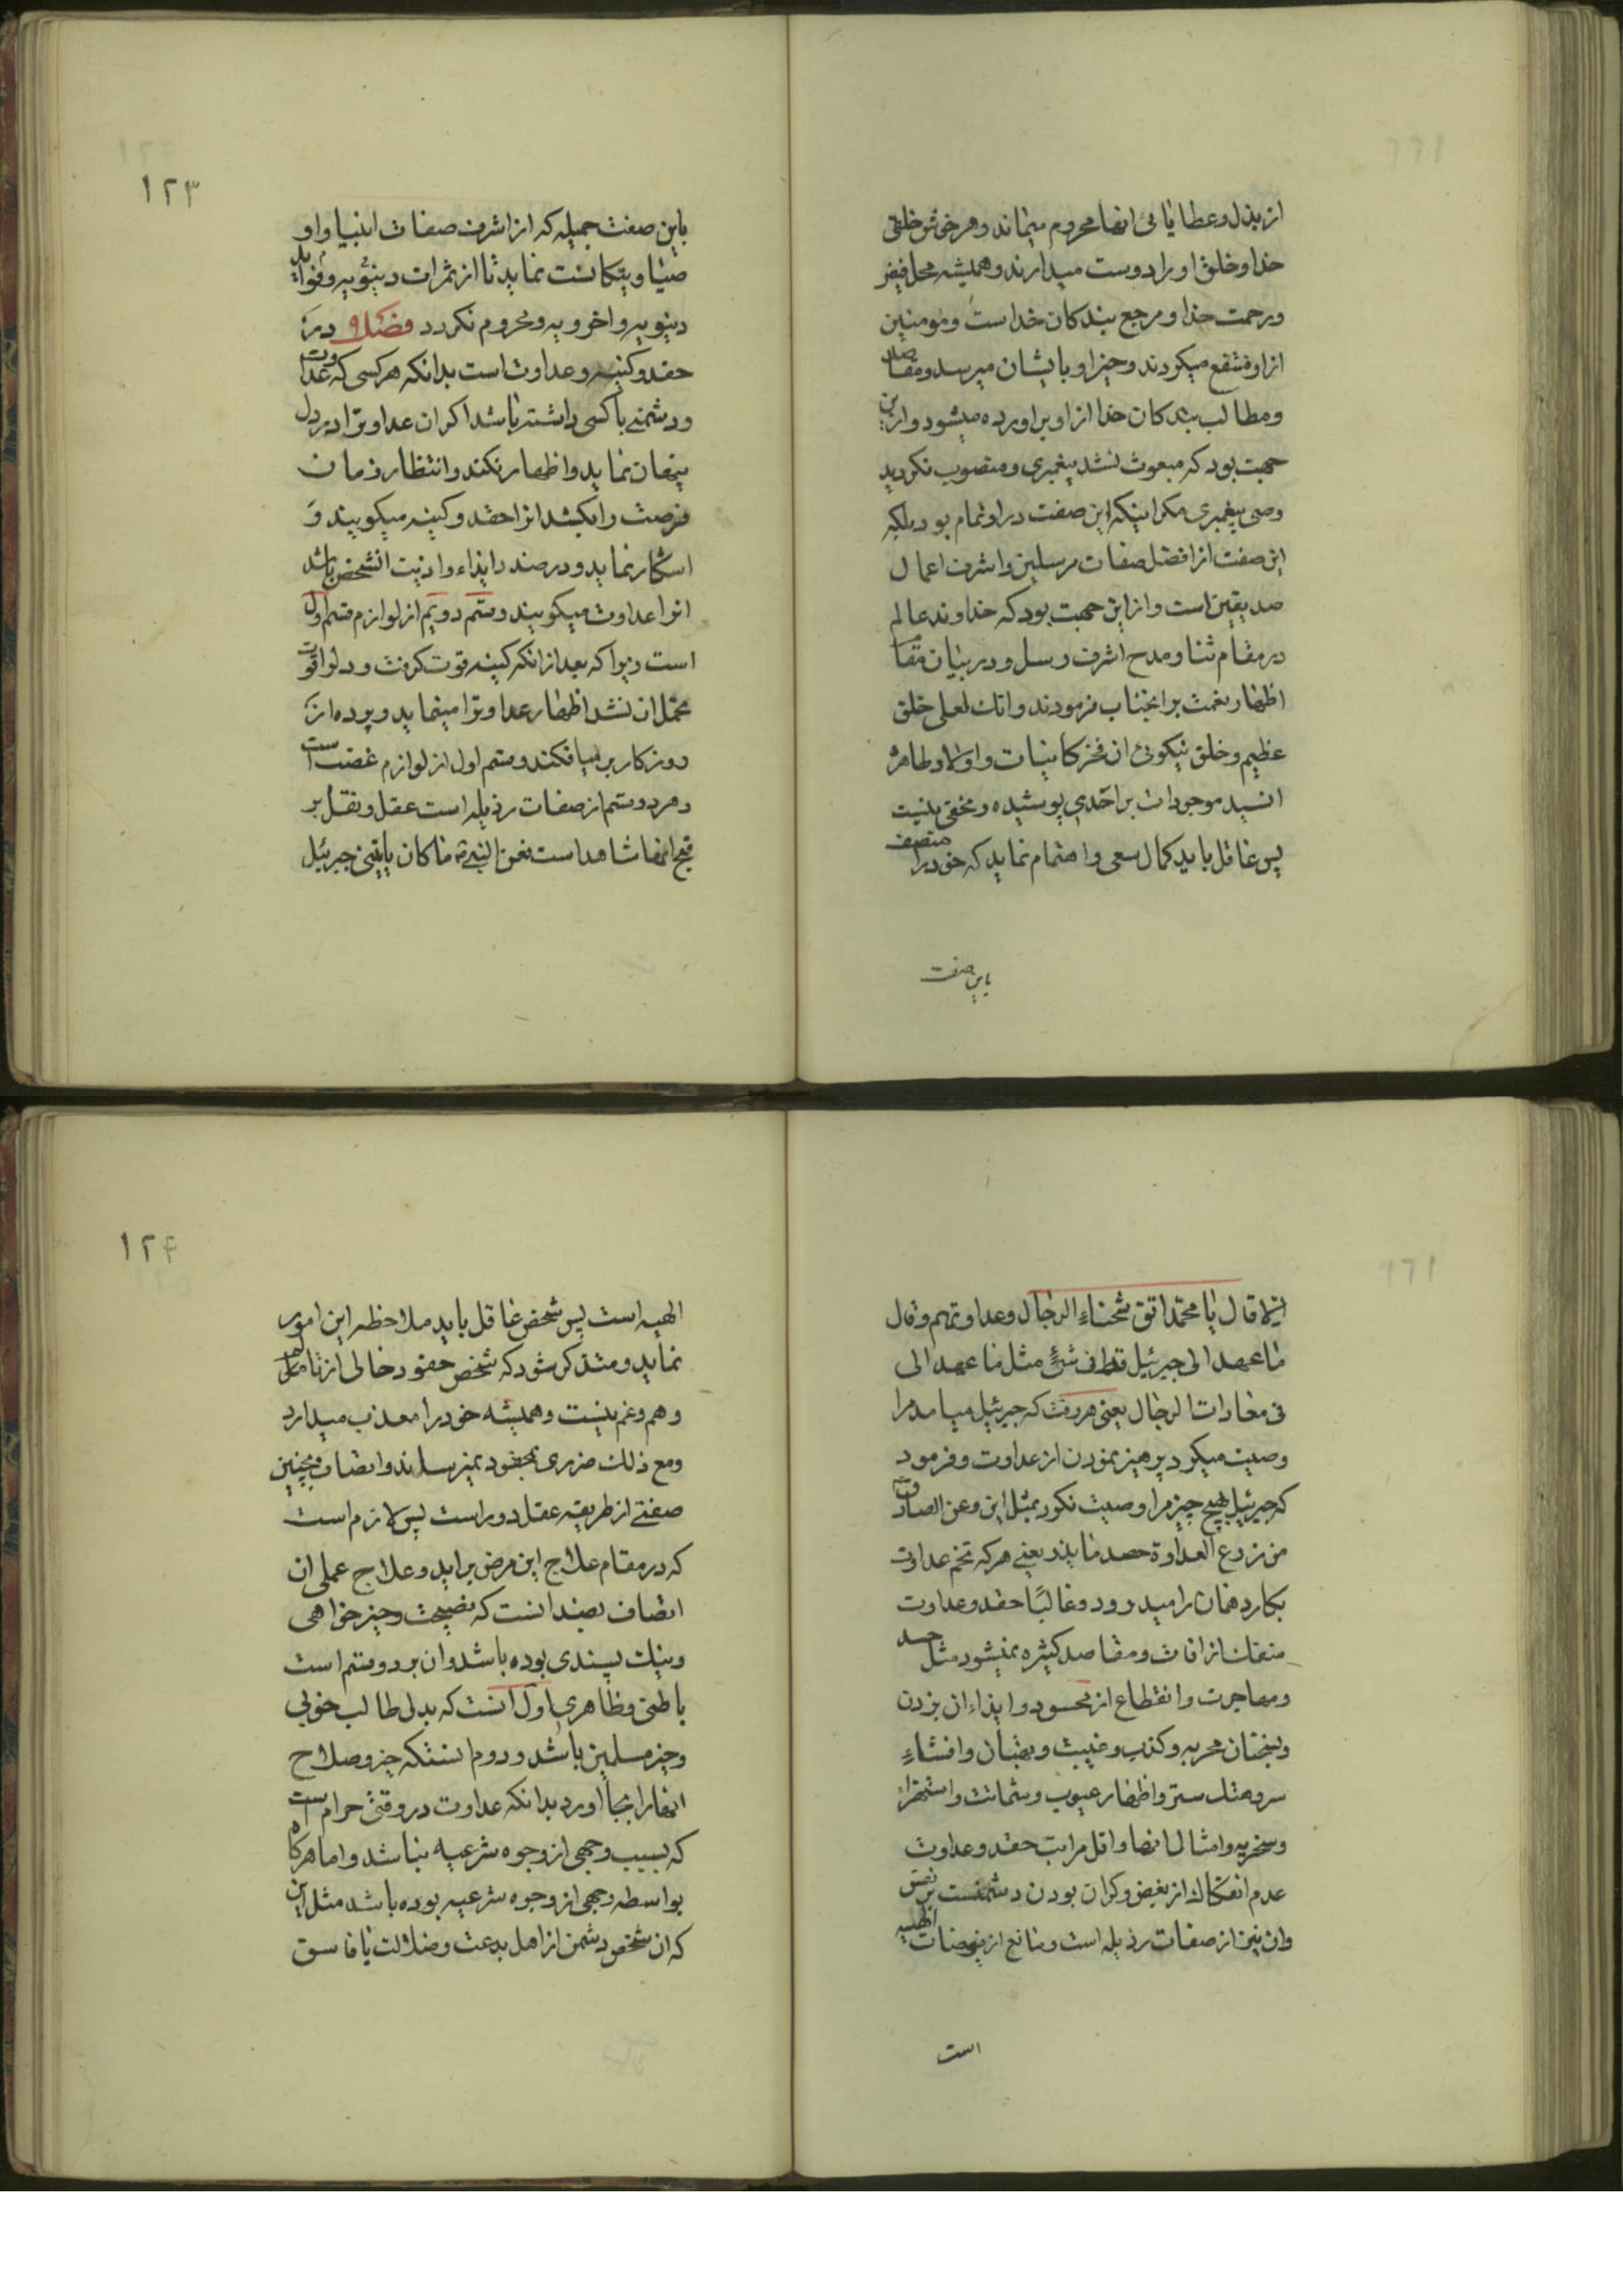 از بذل و عطایای انها محروم میماند و هر خوش خلقی
خدا و خلق او را دوست میدارند و همیشه محل فیض
و رحمت خدا و مرجع بندکان خداست و مومنین
از او منتفع میکردند و خیر او بایشان میرسد و مقاصد
و مطالب بندکان خدا از او براورده میشود و از این
جهت بود که مبعوث نشد پیغمبری و منصوب نکردید
وصی پیغمبری مکر اینکه این صفت در او تمام بود بلکه
این صفت از افضل صفات مرسلین و اشرف اعمال
صدیقین است و از این جهت بود که خداوند عالم
در مقام ثنا و مدح اشرف رسل و در بیان مقام
اظهار نعمت بر انجناب فرمودند و انك لعلی خلق
عظیم و خلق نیکوئی ان فخر کاینات و اولاد طاهره
انسید موجودات بر احدی پوشیده و مخفی نیست
پس عاقل باید کمال سعی و اهتمام نماید که خود را متصف
باین صفت
۱۲۳
باین صفت جمیله که از اشرف صفات انبیا و او
صیا و نیکانست نماید تا از ثمرات دینویه و فواید
دینویه و اخرویه محروم نکردد فصل ۹ در مذ
حقد و کینه و عداوت است بدانکه هر کسی که عداوت
و دشمنی با کسی داشته باشد اکر ان عداوترا در دل
پنهان نماید و اظهار نکند و انتظار زمان
فرصت را بکشد انرا حقد و کینه میکویند و
اشکار نماید و در صدد ایذاء و اذیت انشخص باشد
انرا عداوت میکویند و قسم دویم از لوازم قسم اول
است زیرا که بعد از انکه کینه قوت کرفت و دلرا قوت
تحمل ان نشد اظهار عداوترا مینماید و پرده از
روز کار بر میافکند و قسم اول از لوازم غضب است
و هر دو قسم از صفات رذیله است عقل و نقل بر
قبح انها شاهد است فعن النبی ص ما کان یاتینی جبرئیل
الا قال یا محمد اتق شحناء الرجال و عداوتهم و قال
ما عهد الی جبرئیل قط فی شئ مثل ما عهد الی
فی معادات الرجال یعنی هر وقت که جبرئیل میامد مرا
وصیت میکرد پرهیز نمودن از عداوت و فرمود
که جبرئیل بهیچ چیز مرا وصیت نکرد بمثل این و عن الصادق
من زرع العداوة حصد ما بذر یعنی هر که تخم عداوت
بکارد همان را میدرود و غالبًا حقد و عداوت
منفك از افات و مفاصد کثیره نمیشود مثل حسد
و مهاجرت و انقطاع از محسود و ایذاء ان بزدن
و سخنان محربه و کذب و غیبت و بهتان و افشاء
سر و هتك ستر و اظهار عیوب و شماتت و استهزاء
و سخریه و امثال انها و اقل مراتب حقد و عداوت
عدم انفکاك از بغض و کران بودن دشمنست بر نفس
و ان نیز از صفات رذیله است و مانع از فیوضات الهیه
است
۱۲۴
الهیه است پس شخص عاقل باید ملاحظه این امور
نماید و متذکر شود که شخص حقود خالی از تالم
و هم و غم نیست و همیشه خود را معذب میدارد
و مع ذلك ضرری بمحقود نمیرساند و اتصاف بچنین
صفتی از طریقه عقل دور است پس لازم است
که در مقام علاج این مرض براید و علاج عملی ان
اتصاف بضد انست که نصیحت و خیر خواهی
و نیك پسندی بوده باشد و ان بر دو قسم است
باطنی و ظاهری اول انست که بدل طالب خوبی
و خیر مسلمین باشد و دوم انستکه خیر و صلاح
انها را بجا اورد بدانکه عداوت در وقتی حرام است
که بسبب وجهی از وجوه شرعیه نباشد و اما هر کاه
بواسطه وجهی از وجوه شرعیه بوده باشد مثل این
که ان شخص دشمن از اهل بدعت و ضلالت یا فاسق